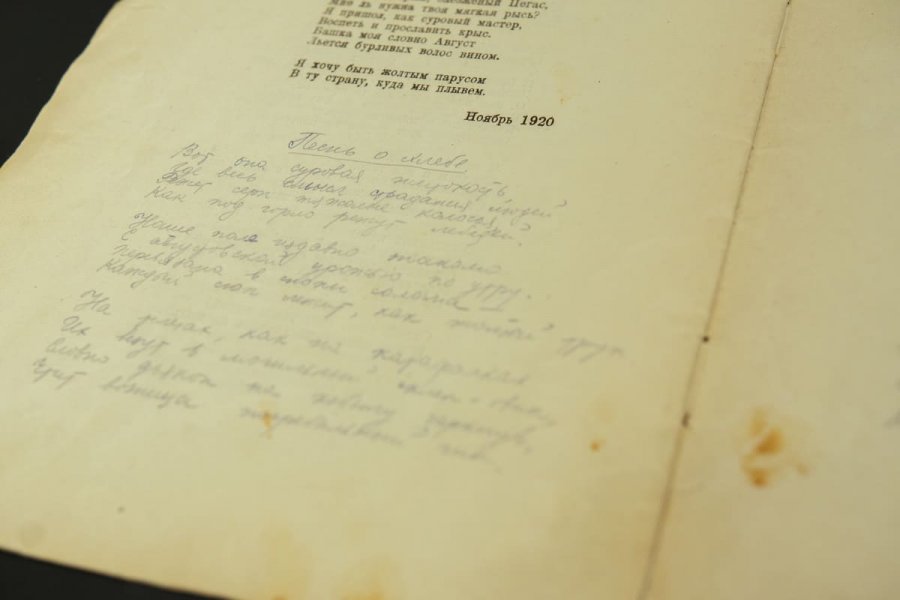 заезженый Пегас,
Мне ль нужна твоя мягкая рысь?
Я пришол, как суровый мастер,
Воспеть и прославить крыс.
Башка моя словно Август
Льется бурливых волос вином.
Я хочу быть жолтым парусом
В ту страну, куда мы плывем.
Ноябрь 1920
Песнь о хлебе
Вот она суровая жестокость
Где весь смысл страдания людей
Режет серп тяжелые колосья
Как под горло режут лебедей.
Наше поле издавна знакомо
С августовской дрожью по утру.
Перевязана в снопы солома
Каждый сноп лежит, как желтый труп
На как на катафалках
Их везут в могильный склеп - овин,
Словно дьякон на кобылу гаркнув,
Чтит возница погребальный чин.